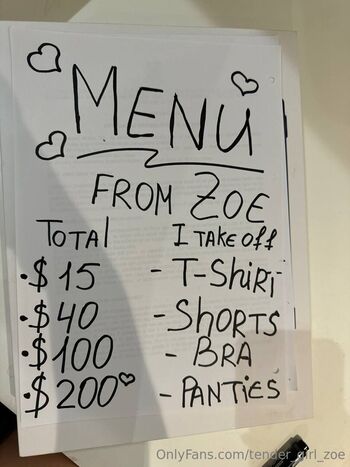 MENU
FROM ZOE
TOTAL I TAKE OFF
·$15 - T-SHIRT
·$40 - SHORTS
·$100 - BRA
·$200 - PANTIES
OnlyFans.com/tender_girl_zoe